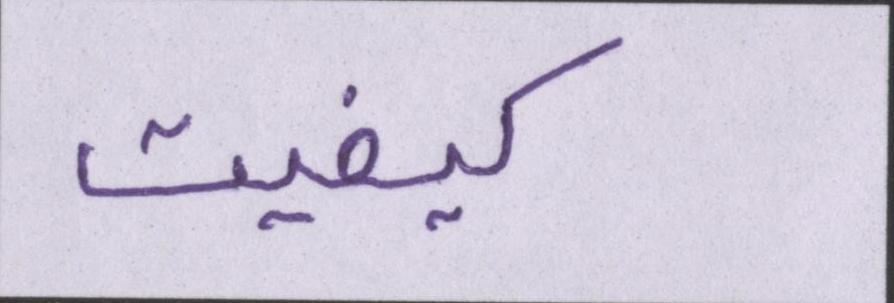 کیفیت